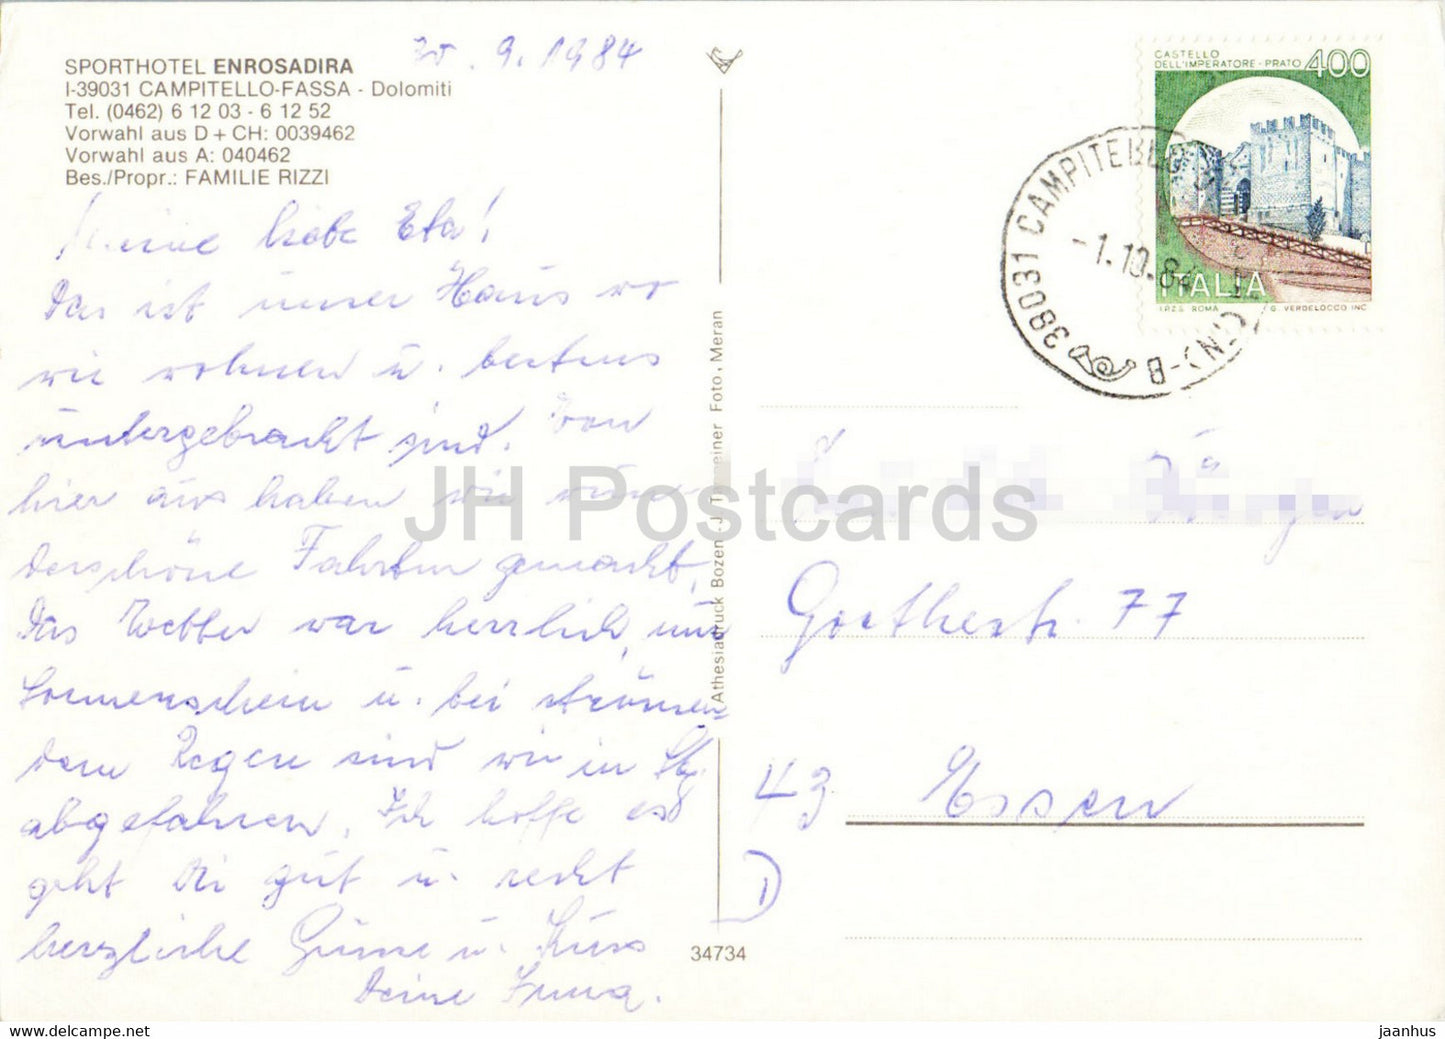 SPORTHOTEL ENROSADIRA
I-39031 CAMPITELLO-FASSA - Dolomiti
Tel. (0462) 6 12 03 - 6 12 52
Vorwahl aus D + CH: 0039462
Vorwahl aus A: 040462
Bes./Propr.: FAMILIE RIZZI
30. 9. 1984
Meine liebe Eta!
Das ist unser Haus wo
wir wohnen u. bestens
untergebracht sind. Von
hier aus haben wir wun
derschöne Fahrten gemacht,
das Wetter war herrlich, nur
Sonnenschein u. bei strömen
dem Regen sind wir in
abgefahren. Ich hoffe es
geht Dir gut u. recht
herzliche Grüsse u. Kuss
Deine
Athesiadruck Bozen J. einer Foto, Meran
34734
CASTELLO
DELL'IMPERATORE - PRATO 400
ITALIA
I.P.Z.S. ROMA G. VERDELOCCO INC.
38031 CAMPITELLO
-1.10.84
(TN)-B
Jürgen
Goethestr. 77
43 Essen
D
JH Postcards
jaanhus